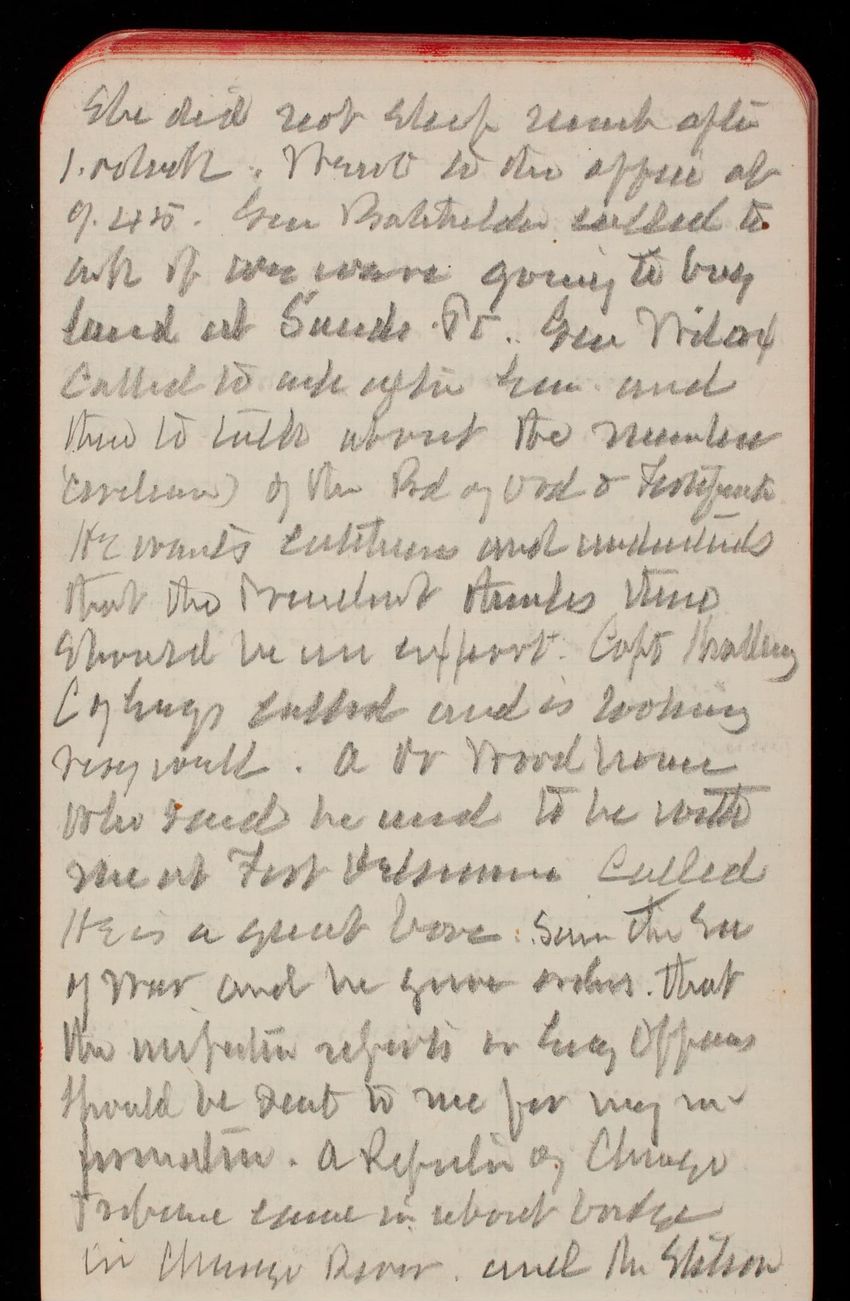 She did not sleep much after
1. oclock. Went to the office at
9.45. Gen Batchelder called to
ask if we were going to buy
land at Sands Pt. Gen Wilcox
Called to ask after Gen and
then to talk about the member
(civilian) of the Bd of Ord & Fortificatn
He wants and understands
that the President thinks there
Should be an expert. Capt
C of Engs called and is looking
very well. A Dr Woodhouse
who said he used to be with
me at Fort called
He is a great bore. Saw the Sec
of War and he gave orders. that
the inspection reports on Eng Officers
Should be sent to me for my in-
formation. A Reporter of Chicago
Tribune came in about bridge
in Chicago River. and Mr